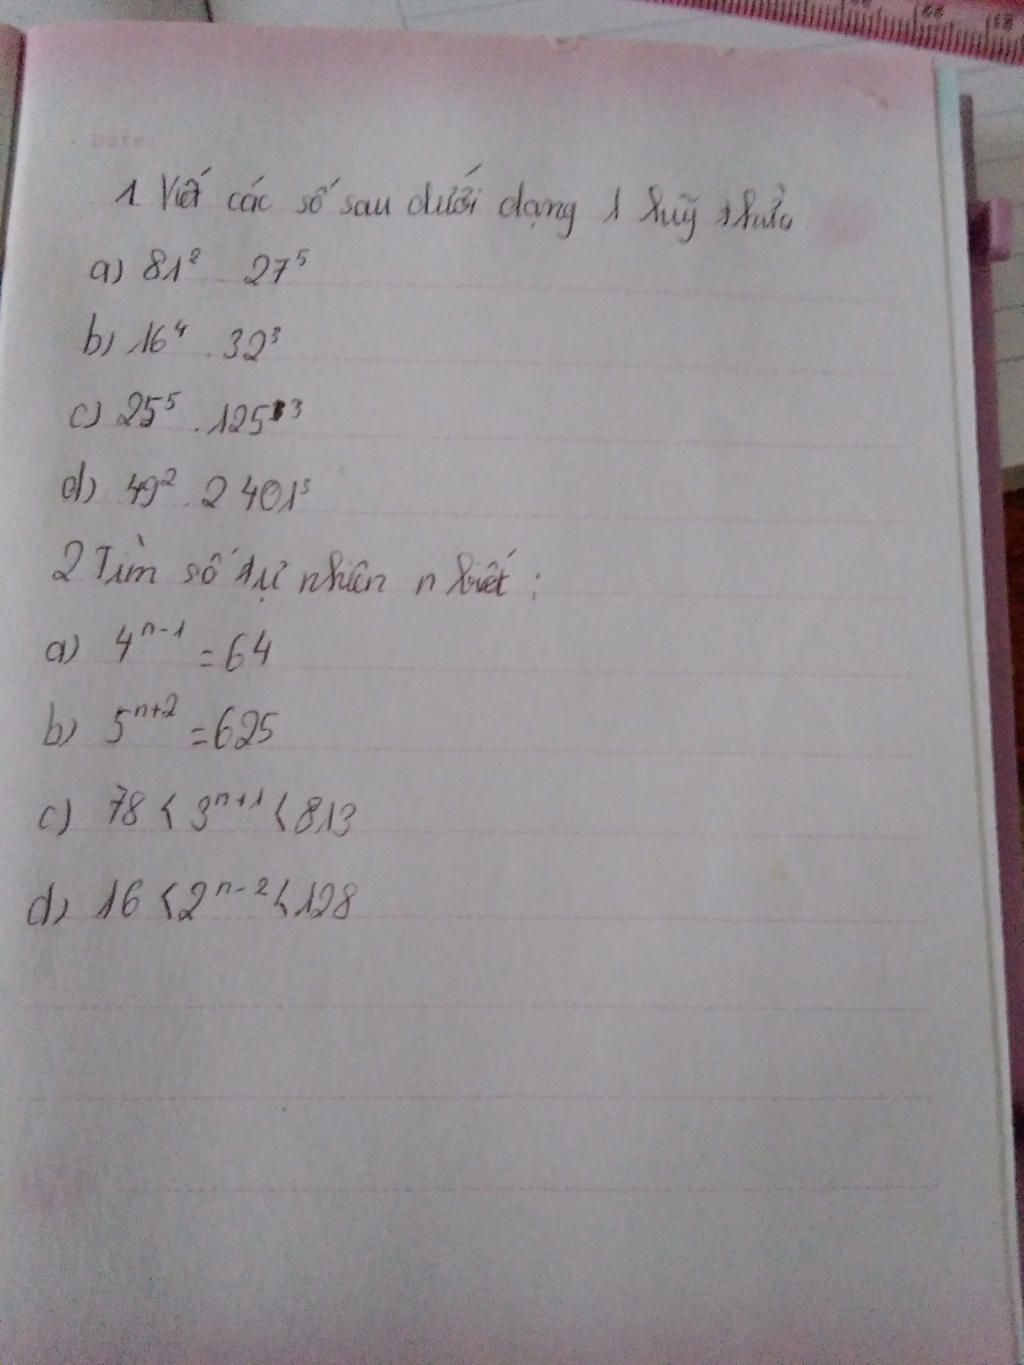 Date:
1. Viết các số sau dưới dạng 1 luỹ thừa
a) 81² 27⁵
b) 16⁴ . 32³
c) 25⁵ . 125³
d) 49² . 2 401³
2 Tìm số tự nhiên n biết :
a) 4ⁿ⁻¹ = 64
b) 5ⁿ⁺² = 625
c) 78 < 3ⁿ⁺¹ < 813
d) 16 < 2ⁿ⁻² < 128